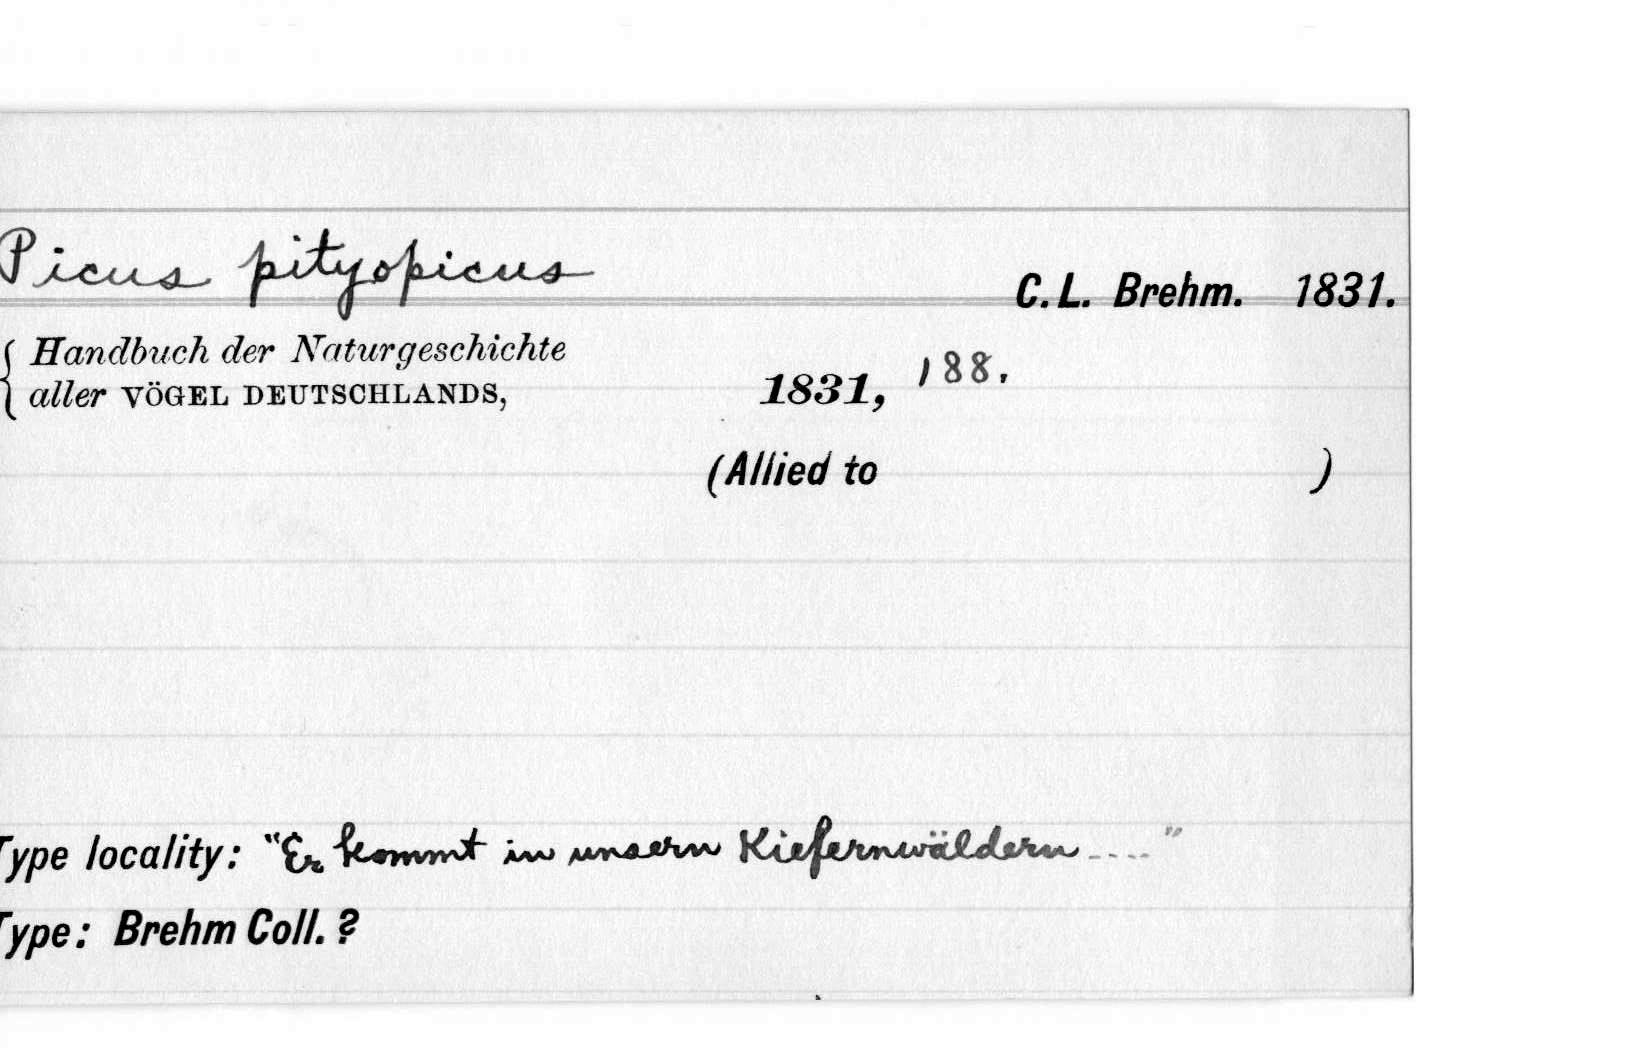 Picus pityopicus
C. L. Brehm. 1831.
Handbuch der Naturgeschichte
aller VÖGEL DEUTSCHLANDS, 1831, 188.
(Allied to )
Type locality: "Er kommt in unsern Kiefernwäldern...."
Type: Brehm Coll. ?